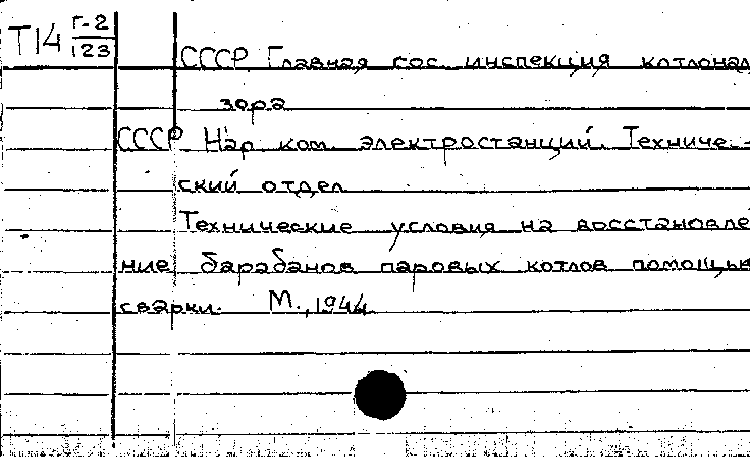 Т14 Г-2
123
СССР. Главная гос. инспекция котлонад
зора
СССР. Нар. ком. электростанций. Техниче-
ский отдел
Технические условия на восстановле
ние барабанов паровых котлов помощью
сварки. М., 1944.